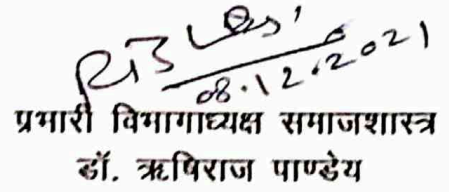 08.12.2021
प्रभारी विभागाध्यक्ष समाजशास्त्र
डॉ. ऋषिराज पाण्डेय